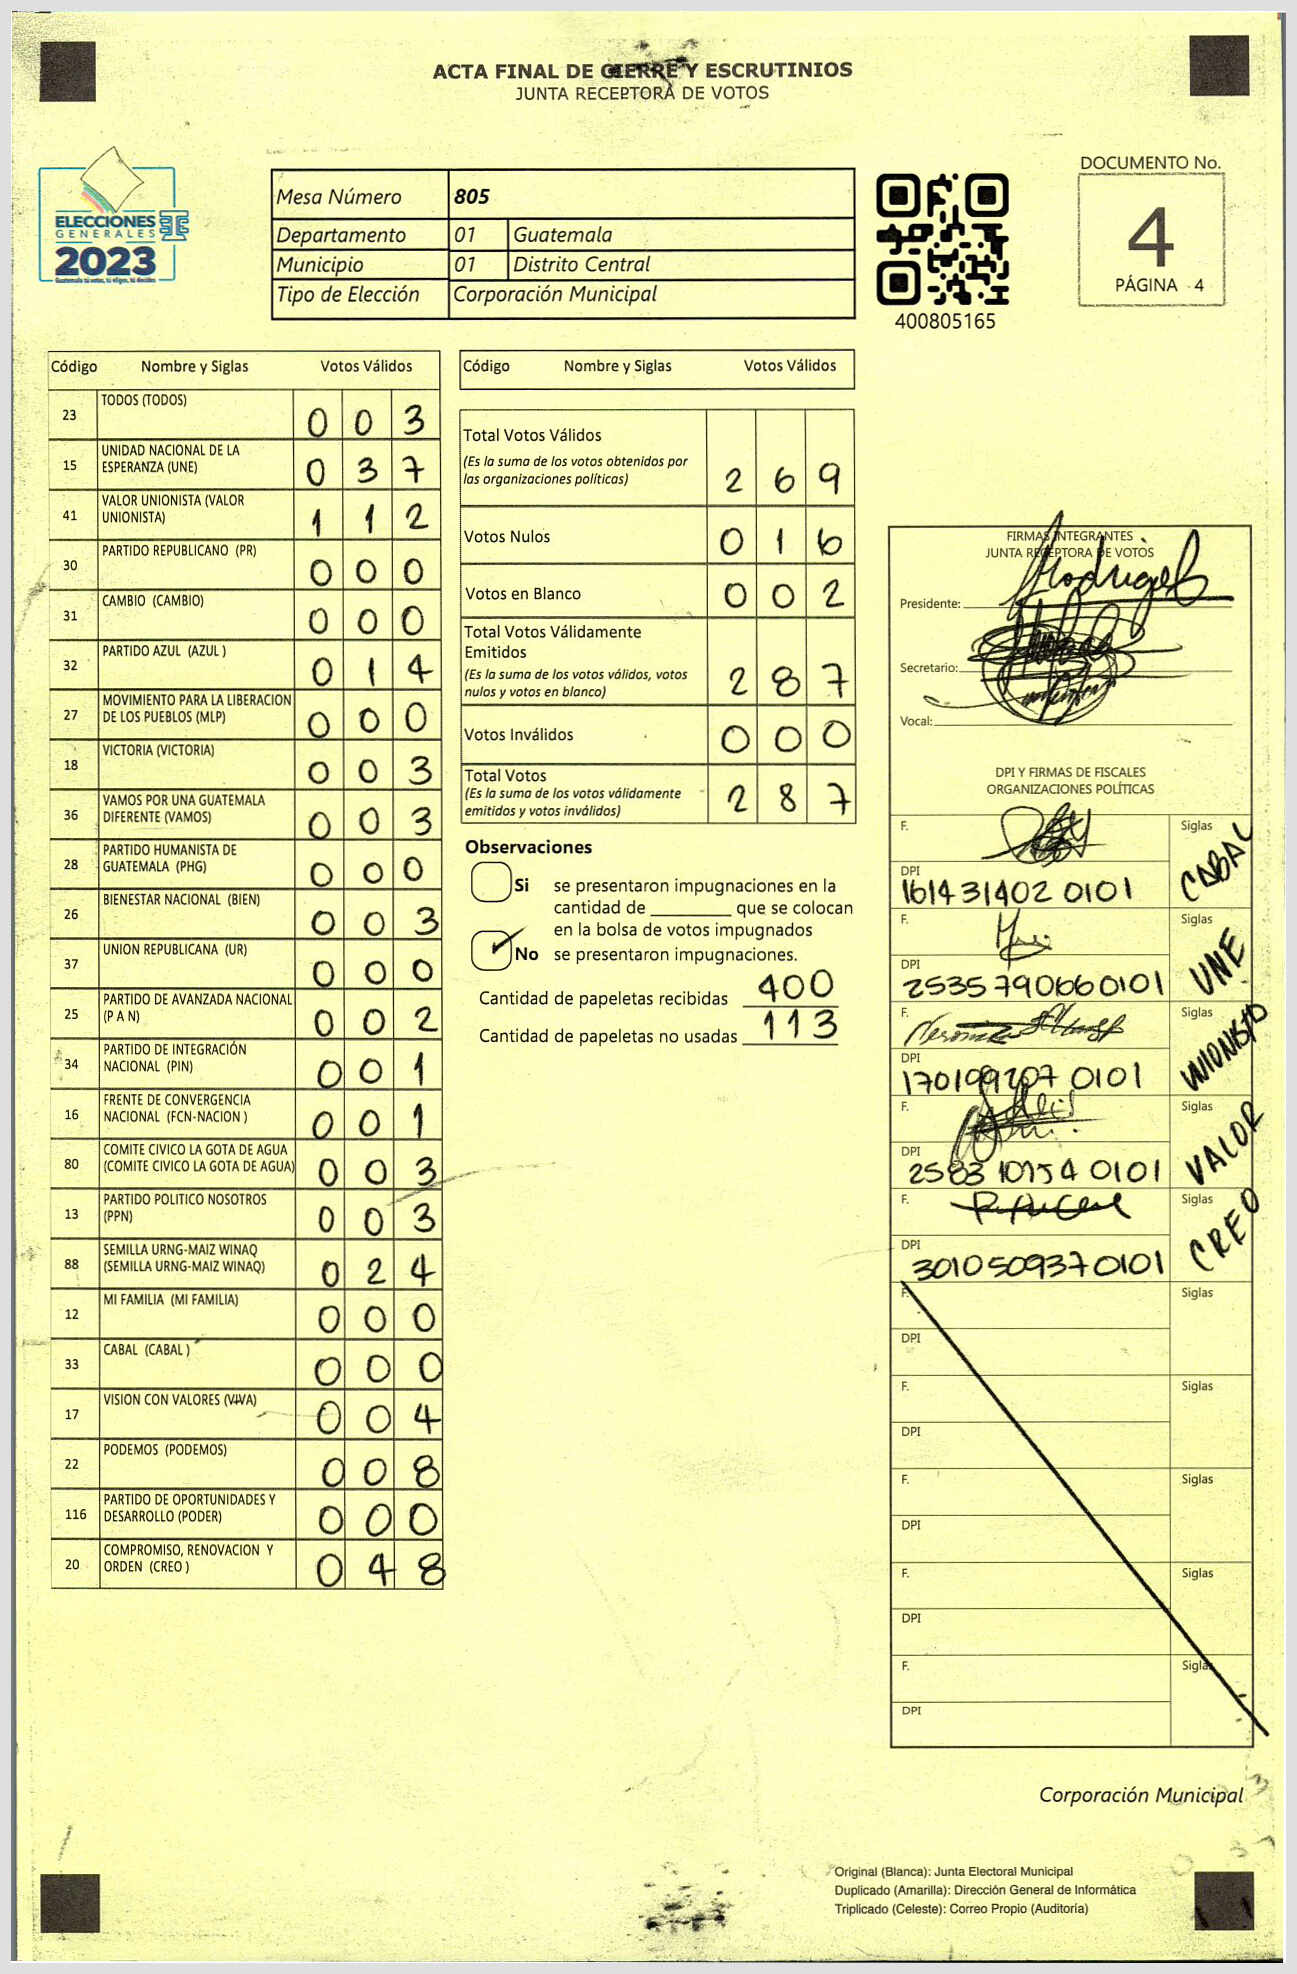 ACTA FINAL DE CIERRE Y ESCRUTINIOS
JUNTA RECEPTORA DE VOTOS
ELECCIONES
GENERALES
2023
Mesa Número 805
Departamento 01 Guatemala
Municipio 01 Distrito Central
Tipo de Elección Corporación Municipal
400805165
DOCUMENTO No.
4
PÁGINA 4
Código Nombre y Siglas Votos Válidos
23 TODOS (TODOS) 0 0 3
15 UNIDAD NACIONAL DE LA
ESPERANZA (UNE) 0 3 7
41 VALOR UNIONISTA (VALOR
UNIONISTA) 1 1 2
30 PARTIDO REPUBLICANO (PR) 0 0 0
31 CAMBIO (CAMBIO) 0 0 0
32 PARTIDO AZUL (AZUL ) 0 1 4
27 MOVIMIENTO PARA LA LIBERACION
DE LOS PUEBLOS (MLP) 0 0 0
18 VICTORIA (VICTORIA) 0 0 3
36 VAMOS POR UNA GUATEMALA
DIFERENTE (VAMOS) 0 0 3
28 PARTIDO HUMANISTA DE
GUATEMALA (PHG) 0 0 0
26 BIENESTAR NACIONAL (BIEN) 0 0 3
37 UNION REPUBLICANA (UR) 0 0 0
25 PARTIDO DE AVANZADA NACIONAL
(P A N) 0 0 2
34 PARTIDO DE INTEGRACIÓN
NACIONAL (PIN) 0 0 1
16 FRENTE DE CONVERGENCIA
NACIONAL (FCN-NACION ) 0 0 1
80 COMITE CIVICO LA GOTA DE AGUA
(COMITE CIVICO LA GOTA DE AGUA) 0 0 3
13 PARTIDO POLITICO NOSOTROS
(PPN) 0 0 3
88 SEMILLA URNG-MAIZ WINAQ
(SEMILLA URNG-MAIZ WINAQ) 0 2 4
12 MI FAMILIA (MI FAMILIA) 0 0 0
33 CABAL (CABAL ) 0 0 0
17 VISION CON VALORES (VIVA) 0 0 4
22 PODEMOS (PODEMOS) 0 0 8
116 PARTIDO DE OPORTUNIDADES Y
DESARROLLO (PODER) 0 0 0
20 COMPROMISO, RENOVACION Y
ORDEN (CREO ) 0 4 8
Código Nombre y Siglas Votos Válidos
Total Votos Válidos
(Es la suma de los votos obtenidos por
las organizaciones políticas) 2 6 9
Votos Nulos 0 1 6
Votos en Blanco 0 0 2
Total Votos Válidamente
Emitidos
(Es la suma de los votos válidos, votos
nulos y votos en blanco) 2 8 7
Votos Inválidos 0 0 0
Total Votos
(Es la suma de los votos válidamente
emitidos y votos inválidos) 2 8 7
Observaciones
Si se presentaron impugnaciones en la
cantidad de ________ que se colocan
en la bolsa de votos impugnados
No se presentaron impugnaciones.
Cantidad de papeletas recibidas 400
Cantidad de papeletas no usadas 113
FIRMAS INTEGRANTES
JUNTA RECEPTORA DE VOTOS
Presidente:
Secretario:
Vocal:
DPI Y FIRMAS DE FISCALES
ORGANIZACIONES POLÍTICAS
F. Siglas CABAL
DPI 161431402 0101
F. Siglas UNE
DPI 2535790660101
F. Siglas UNIONISTA
DPI 170199207 0101
F. Siglas VALOR
DPI 2583 10154 0101
F. Siglas CREO
DPI 3010509370101
F. Siglas
DPI
F. Siglas
DPI
F. Siglas
DPI
F. Siglas
DPI
F. Siglas
DPI
Corporación Municipal
Original (Blanca): Junta Electoral Municipal
Duplicado (Amarilla): Dirección General de Informática
Triplicado (Celeste): Correo Propio (Auditoría)